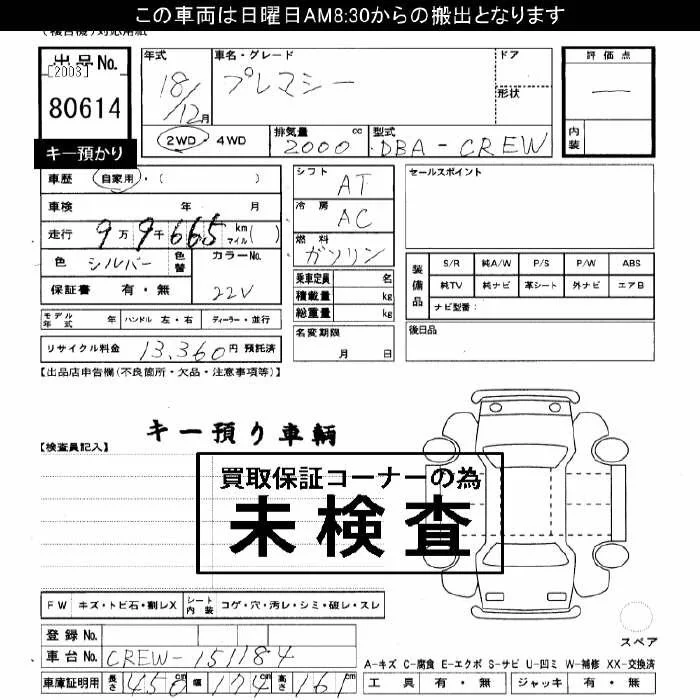 この車両は日曜日AM8:30からの搬出となります
出品No.
[2003]
80614
キー預かり
年式
18/12月
車名・グレード
プレマシー
ドア
形状
評価点
—
内装
2WD・4WD
排気量
2000 cc
型式
DBA-CREW
車歴 自家用・( )
車検 年 月
走行 9万9千665 km マイル( )
色 シルバー 色替
カラーNo.
22V
保証書 有・無
シフト
AT
冷房
AC
燃料
ガソリン
乗車定員 名
積載量 kg
総重量 kg
名変期限
月 日
セールスポイント
装備品
S/R 純A/W P/S P/W ABS
純TV 純ナビ 革シート 外ナビ エアB
ナビ型番:
後日品
モデル年式 年 ハンドル 左・右 ディーラー・並行
リサイクル料金 13,360円 預託済
【出品店申告欄(不良箇所・欠品・注意事項等)】
キー預り車輌
【検査員記入】
買取保証コーナーの為
未検査
FW キズ・トビ石・割レX シート内装 コゲ・穴・汚レ・シミ・破レ・スレ
登録No.
車台No. CREW-151184
車庫証明用 長さ 450cm 幅 174cm 高さ 161cm
スペア
A-キズ C-腐食 E-エクボ S-サビ U-凹ミ W-補修 XX-交換済
工具 有・無 ジャッキ 有・無